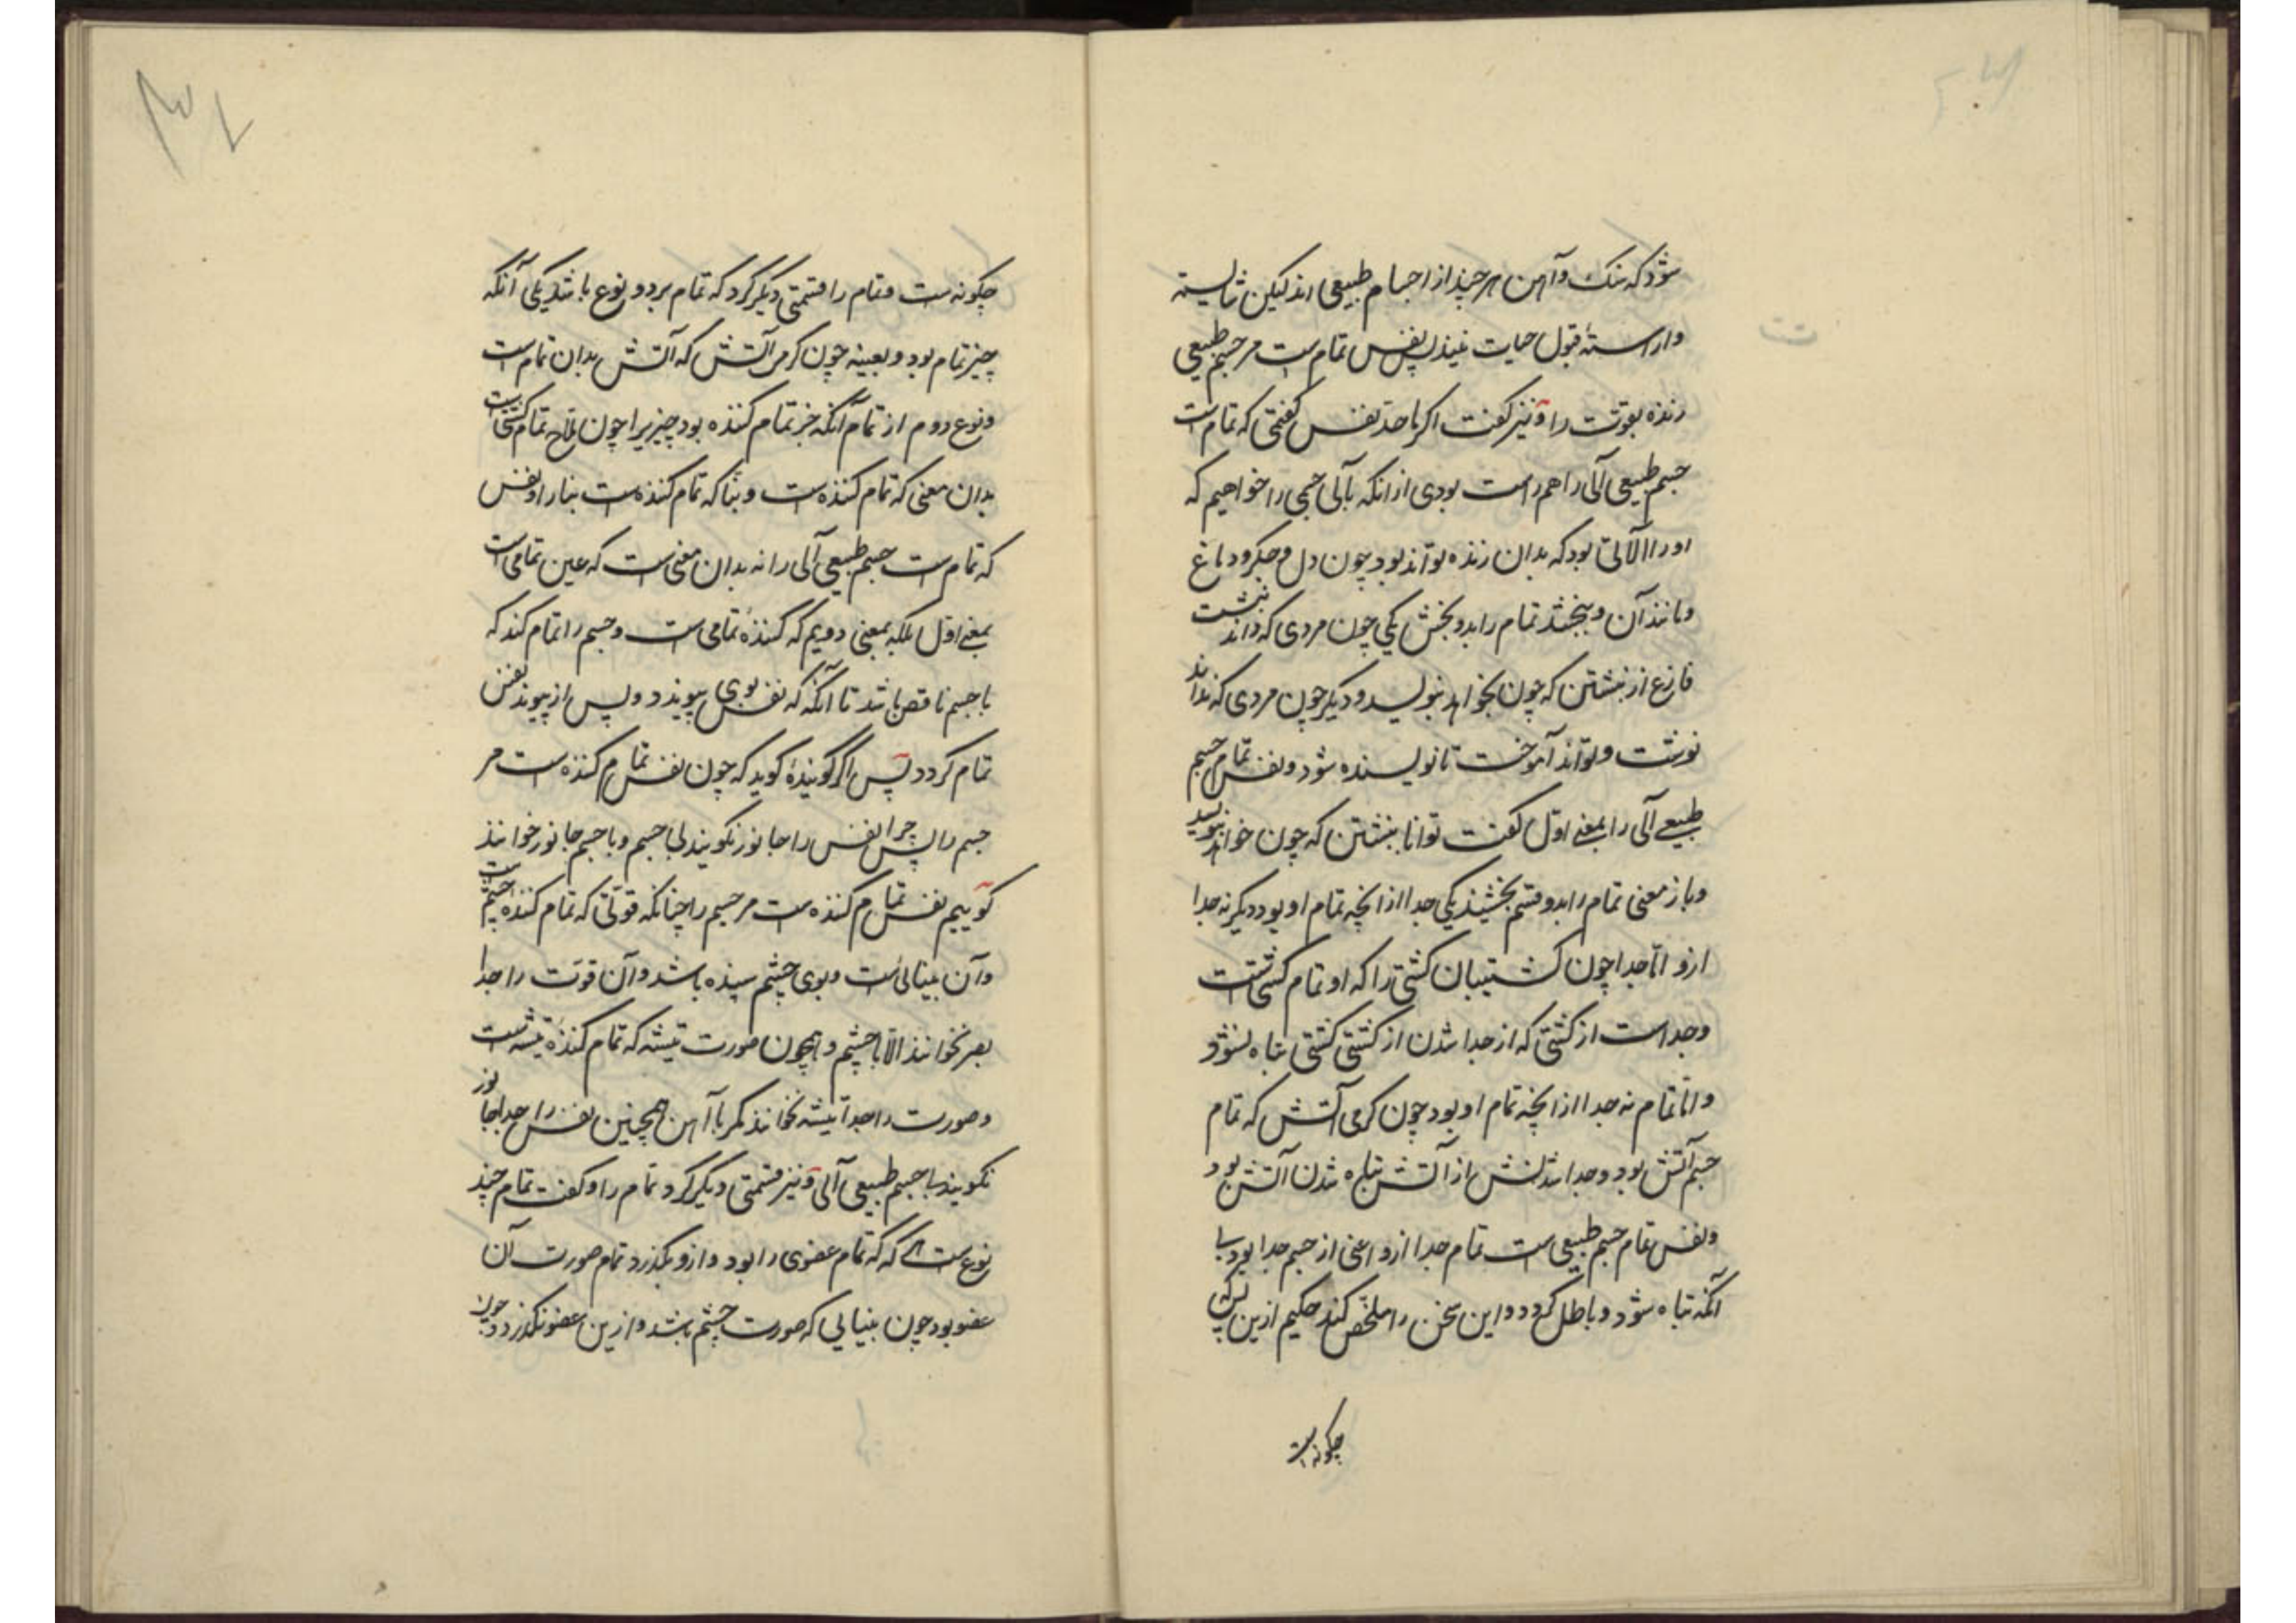 شود که سنک و آهن هر چند از اجسام طبیعی اند لیکن شایسته
و اراستهٔ قبول حیات نیند پس نفس تمام است مر جسم طبیعی
زنده بقوت را و نیز کفت اکر ما حد نفس کفتی که تمام است
جسم طبیعی آلی را هم راست بودی از انکه بآلی جسمی را خواهیم که
او را آلاتی بود که بدان زنده تواند بود چون دل و جکر و دماغ
و مانند آن و ببخشد تمام را بدو بخش یکی چون مردی که داند نبشت
فارغ از نبشتن که چون بخواهد بنویسد و دیکر چون مردی که نداند
نوشت و تواند آموخت تا نویسنده شود و نفس تمام جسم
طبیعی آلی را بمعنی اول کفت توانا بنبشتن که چون خواهد بنویسد
و باز معنی تمام را بدو قسم بخشیند یکی جدا از انچه تمام او بود دیکر نه جدا
ازو اما جدا چون کشتیبان کشتی را که او تمام کشتی است
و جداست از کشتی که از جدا شدن از کشتی کشتی تباه نشود
و اما تمام نه جدا از انچه تمام او بود چون کرمی آتش که تمام
جسم آتش بود و جدا شدنش از آتش تباه شدن آتش بود
و نفس تمام جسم طبیعی است تمام جدا ازو اعنی از جسم جدا بود بی
آنکه تباه شود و باطل کردد و این سخن را ملخص کند حکیم ازین پس که
چکونه است
چکونه است و تمام را قسمتی دیکر کرد که تمام بر دو نوع باشد یکی آنکه
چیز تمام بود و بعینه چون کرمی آتش که آتش بدان تمام است
و نوع دوم از تمام آنکه جز تمام کننده بود چیزیرا چون ملاح تمام کشتی است
بدان معنی که تمام کننده است و بنا که تمام کننده است بنا را و نفس
که تمام است جسم طبیعی آلی را نه بدان معنی است که عین تمامی است
بمعنی اول بلکه بمعنی دویم که کنندهٔ تمامی است و جسم را تمام کند که
با جسم ناقص باشد تا آنکه که نفس بوی پیوندد و پس از پیوند نفس
تمام کردد پس اکر کویندهٔ کوید که چون نفس تمام کننده است مر
جسم را پس چرا نفس را جانور نکویند بی جسم و با جسم جانور خوانند
کوییم نفس تمام کننده است مر جسم را چنانکه قوتی که تمام کننده چشم است
و آن بینائی است و بوی چشم بیننده باشد و آن قوت را جدا
بصر نخوانند الا با چشم و همچون صورت تیشه که تمام کنندهٔ تیشه است
و صورت را جدا تیشه نخوانند مکر با آهن همچنین نفس را جدا جانور
نکویند با جسم طبیعی آلی و نیز قسمتی دیکر کرد تمام را و کفت تمام چند
نوع است که تمام عضوی را بود و ازو بکذرد تمام صورت آن
عضو بود چون بینایی که صورت چشم باشد و ازین عضو نکذرد و چون